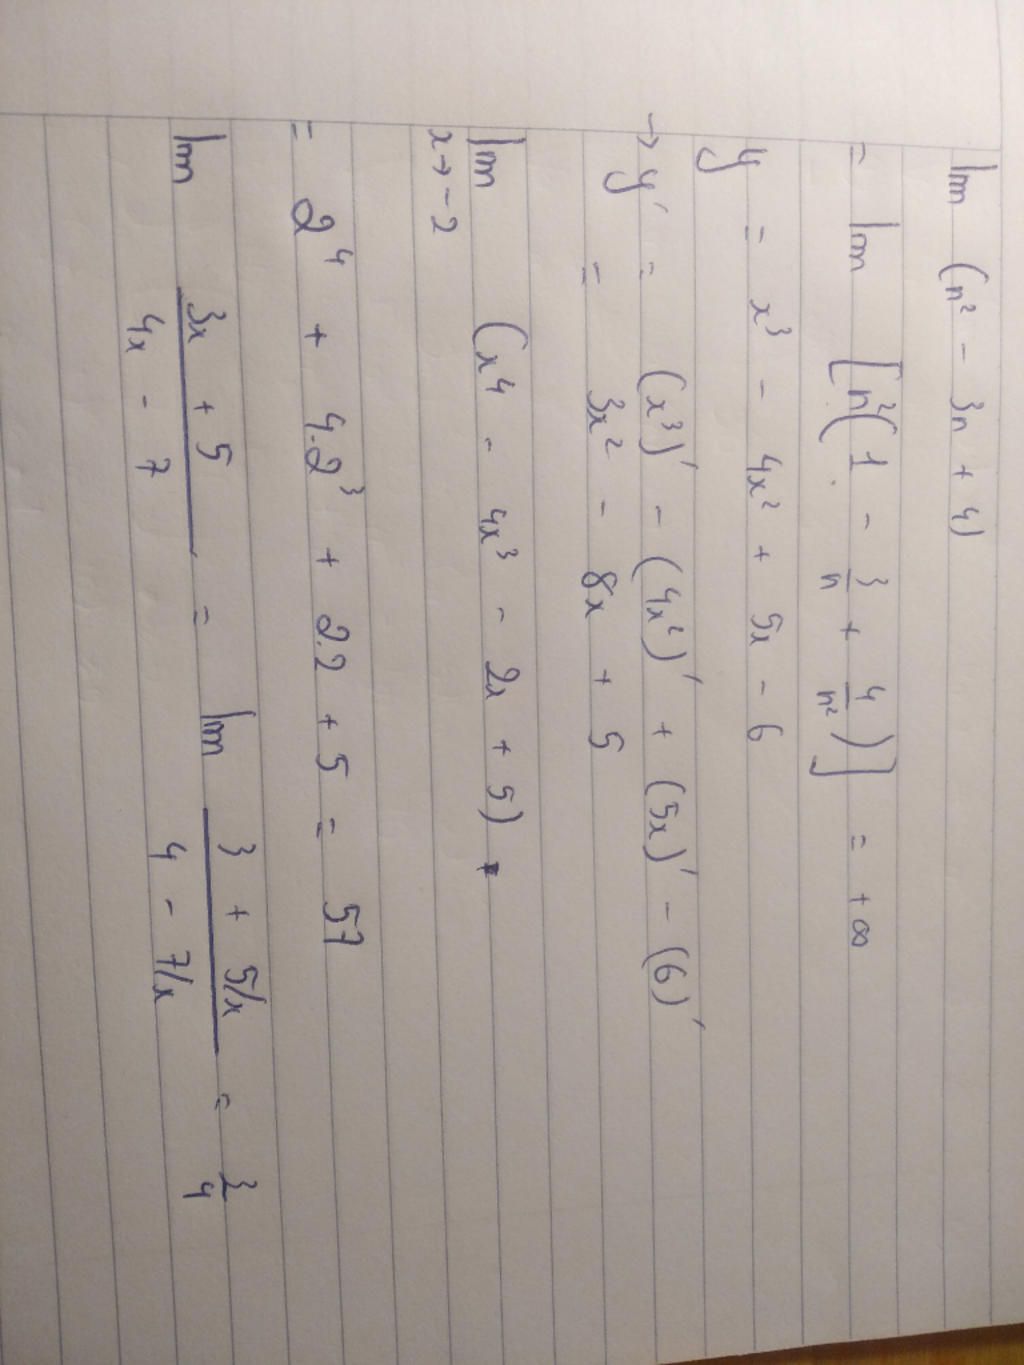 lim (n² - 3n + 4)
= lim [n²(1 - 3/n + 4/n²)] = +∞
y = x³ - 4x² + 5x - 6
→ y' = (x³)' - (4x²)' + (5x)' - (6)'
= 3x² - 8x + 5
lim (x⁴ - 4x³ - 2x + 5)
x → -2
= 2⁴ + 4.2³ + 2.2 + 5 = 57
lim (3x + 5)/(4x - 7) = lim (3 + 5/x)/(4 - 7/x) = 3/4